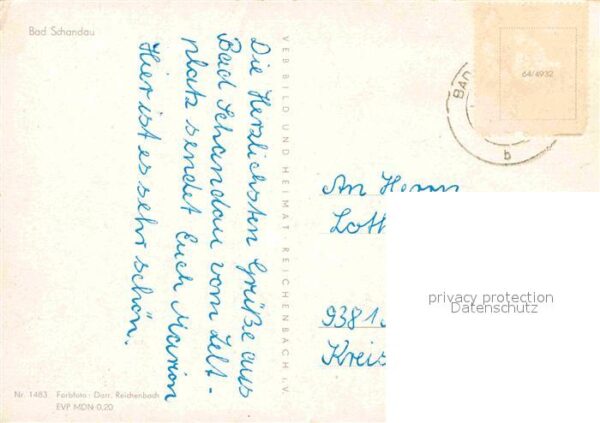 Bad Schandau
Die Herzlichsten Grüße aus
Bad Schandau vom Zelt-
platz sendet Euch Marion
Hier ist es sehr schön.
VEB BILD UND HEIMAT REICHENBACH i.V.
64/4932
BAD
b
An Herrn
Lott
9381
Kreis
privacy protection
Datenschutz
Nr. 1483 Farbfoto: Darr, Reichenbach
EVP MDN 0,20